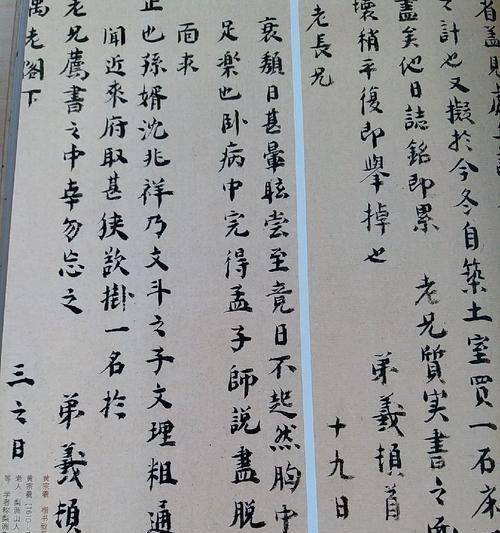 之計也又擬於今冬自築土室買一石床
盡矣他日誌銘即累 老兄質実書之
壞稍平復即舉掉也 弟義頓首
老長兄 十九日
衰頽日甚暈眩嘗至竟日不起然胸中
足樂也卧病中完得孟子師說盡脫
面求
正也孫婿沈兆祥乃文斗之子文理粗通
聞近來府取甚狹欲掛一名於
老兄薦書之中幸勿忘之 弟義頓
老閣下 三之日
黃宗羲